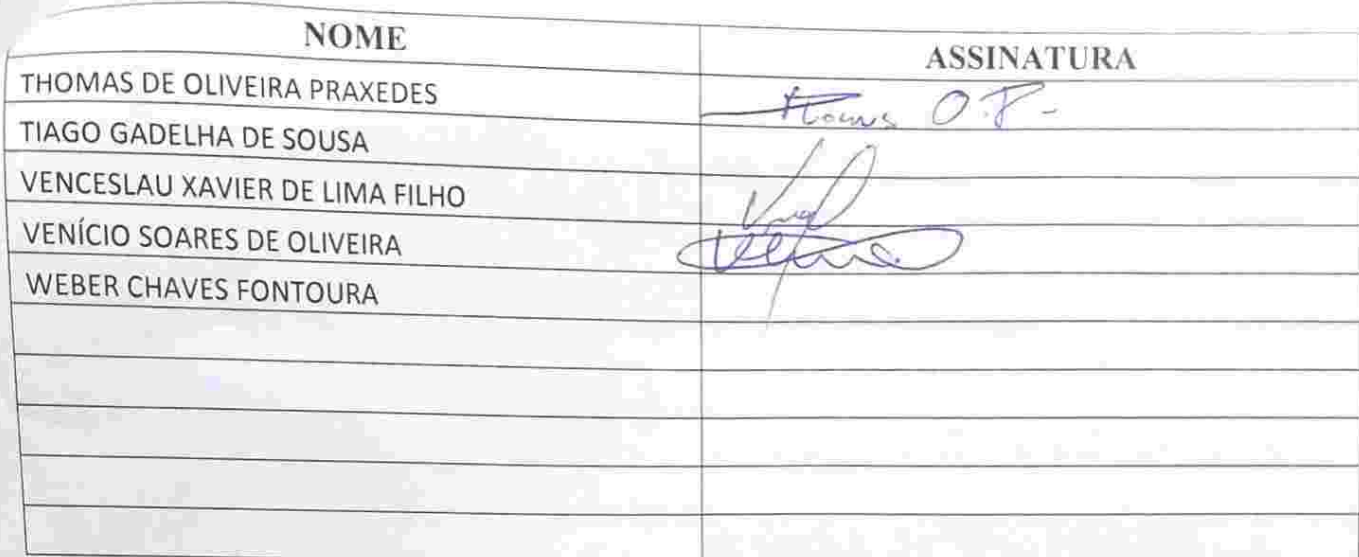 NOME ASSINATURA
THOMAS DE OLIVEIRA PRAXEDES Thomas O.P-
TIAGO GADELHA DE SOUSA
VENCESLAU XAVIER DE LIMA FILHO
VENÍCIO SOARES DE OLIVEIRA
WEBER CHAVES FONTOURA